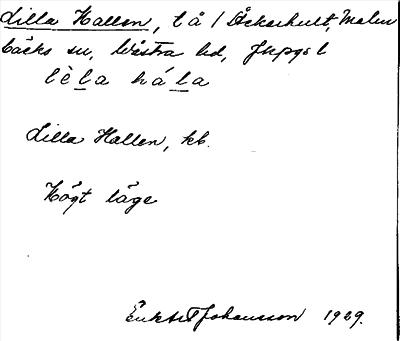 Lilla Hallen, t å / Åckarhult, Malm
bäcks sn, Västra hd, Jkpgs l
lèla hála
Lilla Hallen, kb.
Högt läge
Johansson 1929.